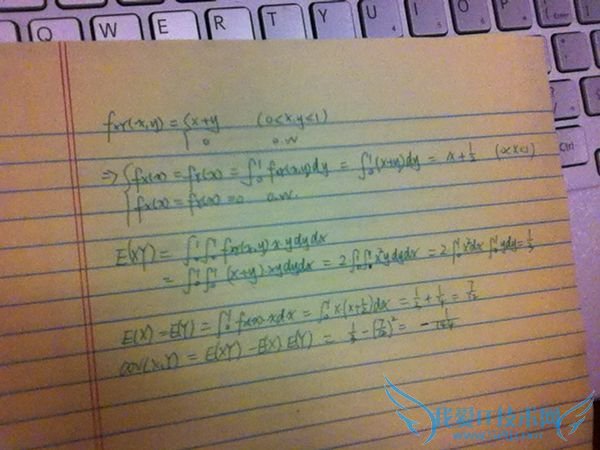 Q W E R T Y U I O P
Ctrl
f_XY(x,y) = { x+y (0<x,y<1)
0 o.w
⇒ { f_X(x) = f_Y(x) = ∫₀¹ f_XY(x,y)dy = ∫₀¹(x+y)dy = x+1/2 (0<x<1)
f_X(x) = f_Y(x) = 0 o.w.
E(XY) = ∫₀¹∫₀¹ f_XY(x,y) x y dy dx
= ∫₀¹∫₀¹ (x+y) xy dy dx = 2∫₀¹∫₀¹ x²y dy dx = 2∫₀¹x²dx ∫₀¹ydy = 1/3
E(X) = E(Y) = ∫₀¹ f_X(x) x dx = ∫₀¹ x(x+1/2)dx = 1/3 + 1/4 = 7/12
cov(X,Y) = E(XY) - E(X) E(Y) = 1/3 - (7/12)² = - 1/144
我爱IT技术网